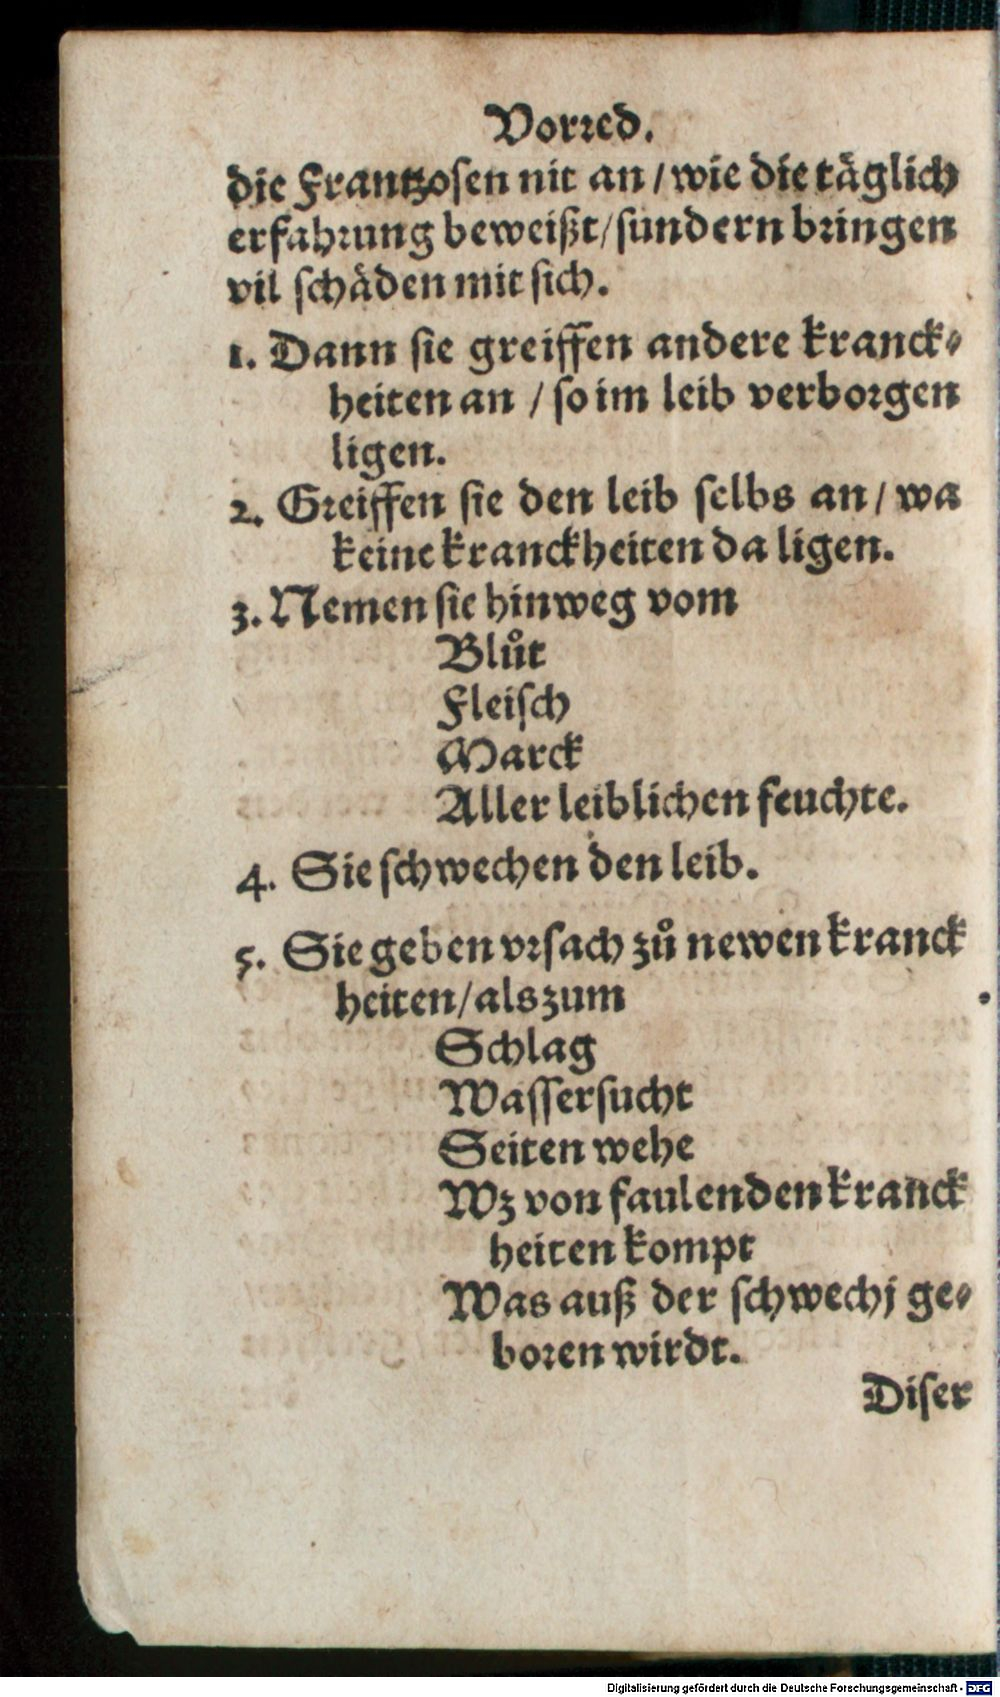 Vorred.
die Frantzosen nit an / wie die täglich
erfahrung beweißt / sundern bringen
vil schäden mit sich.
1. Dann sie greiffen andere kranck⸗
heiten an / so im leib verborgen
ligen.
2. Greiffen sie den leib selbs an / wa
keine kranckheiten da ligen.
3. Nemen sie hinweg vom
Blůt
Fleisch
Marck
Aller leiblichen feuchte.
4. Sie schwechen den leib.
5. Sie geben vrsach zů newen kranck
heiten / als zum
Schlag
Wassersucht
Seiten wehe
Wz von faulenden kranck
heiten kompt
Was auß der schwechj ge⸗
boren wirdt.
Diser
Digitalisierung gefördert durch die Deutsche Forschungsgemeinschaft - DFG